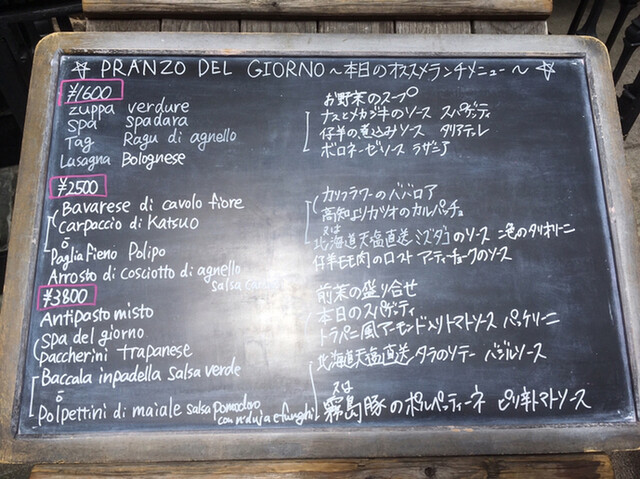 ☆ PRANZO DEL GIORNO～本日のオススメランチメニュー～ ☆
¥1600
zuppa verdure お野菜のスープ
Spa spadara ナスとメカジキのソース スパゲッティ
Tag Ragu di agnello 仔羊の煮込みソース タリアテレ
Lasagna Bolognese ボロネーゼソース ラザニア
¥2500
Bavarese di cavolo fiore カリフラワーのババロア
Carpaccio di Katsuo 高知よりカツオのカルパッチョ
o 又は
Paglia Fieno Polipo 北海道天塩直送ミズダコのソース 二色のタリオリーニ
Arrosto di cosciotto di agnello 仔羊モモ肉のロースト アーティチョークのソース
salsa
¥3800
Antipasto misto 前菜の盛り合せ
Spa del giorno 本日のスパゲッティ
paccherini trapanese トラパニ風アーモンド入りトマトソース パッケリーニ
Baccala inpadella salsa verde 北海道天塩直送タラのソテー バジルソース
o 又は
Polpettini di maiale salsa pomodoro 霧島豚のポルペッティーネ ピリ辛トマトソース
con nduja e funghi